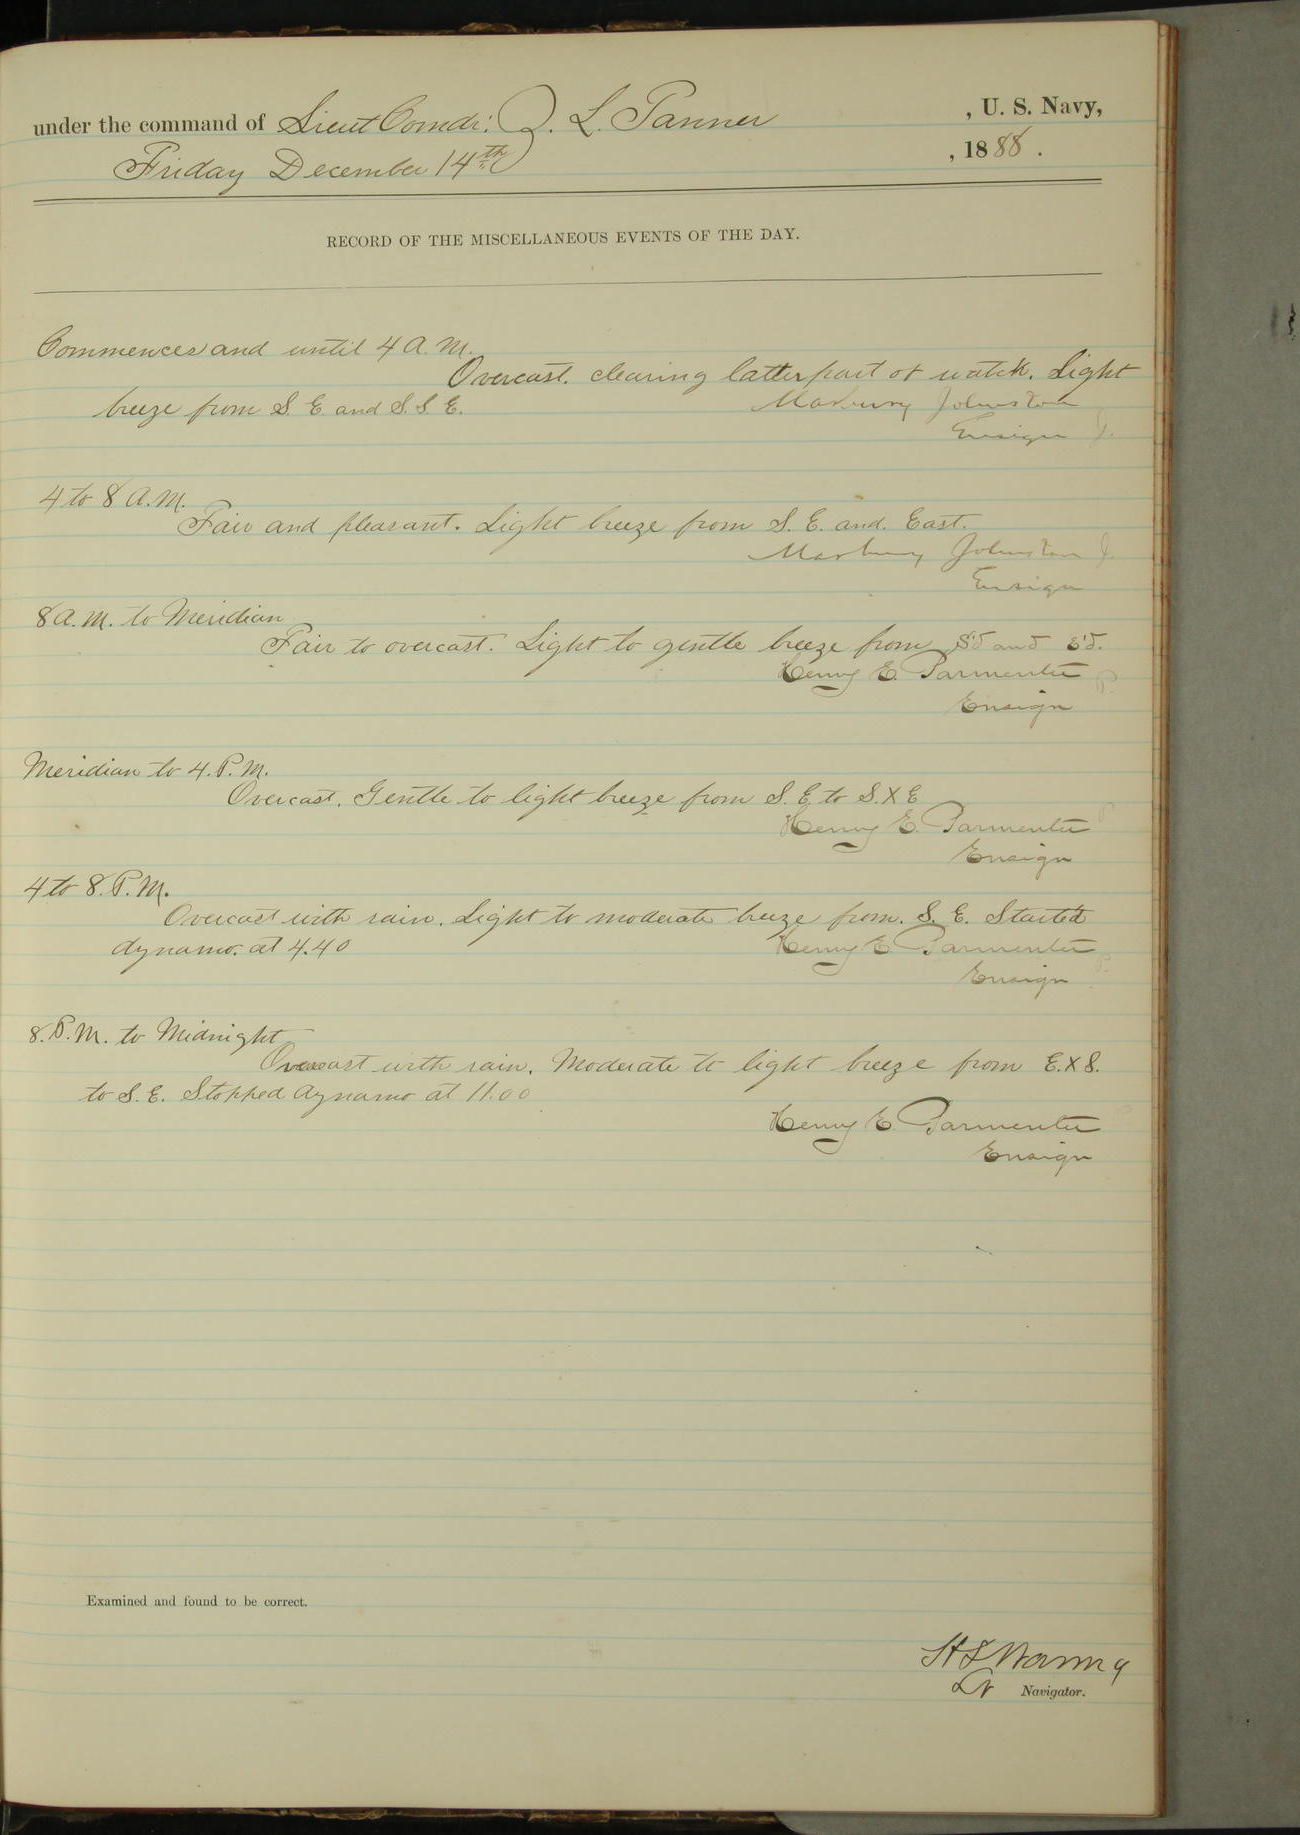 under the command of Lieut Comdr. Z. L. Tanner , U. S. Navy,
Friday December 14th , 1888.
RECORD OF THE MISCELLANEOUS EVENTS OF THE DAY.
Commences and until 4 A.M.
Overcast. clearing latter part of watch. Light
breeze from S. E. and S. S. E. Marbury Johnston
Ensign J.
4 to 8 A.M.
Fair and pleasant. Light breeze from S. E. and. East.
Marbury Johnston J.
Ensign
8 A.M. to Meridian
Fair to overcast. Light to gentle breeze from S'd and E'd.
Henry E. Parmenter P.
Ensign
Meridian to 4. P.M.
Overcast. Gentle to light breeze from S. E. to S.XE
Henry E. Parmenter P
Ensign
4 to 8. P.M.
Overcast with rain. Light to moderate breeze from. S. E. Started
dynamo. at 4.40 Henry E Parmenter P.
Ensign
8. P.M. to Midnight
Overcast with rain. Moderate to light breeze from E.XS.
to S. E. Stopped dynamo at 11.00
Henry E Parmenter
Ensign
Examined and found to be correct.
H S Waring
Lt Navigator.